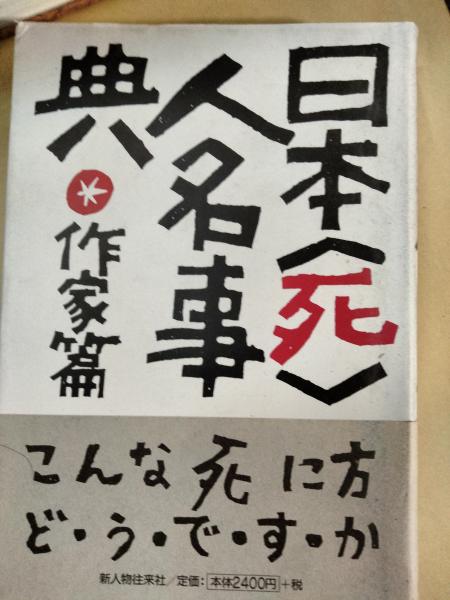 日本〈死〉
人名事
典*作家篇
こんな死に方
ど・う・で・す・か
新人物往来社/定価：本体2400円+税